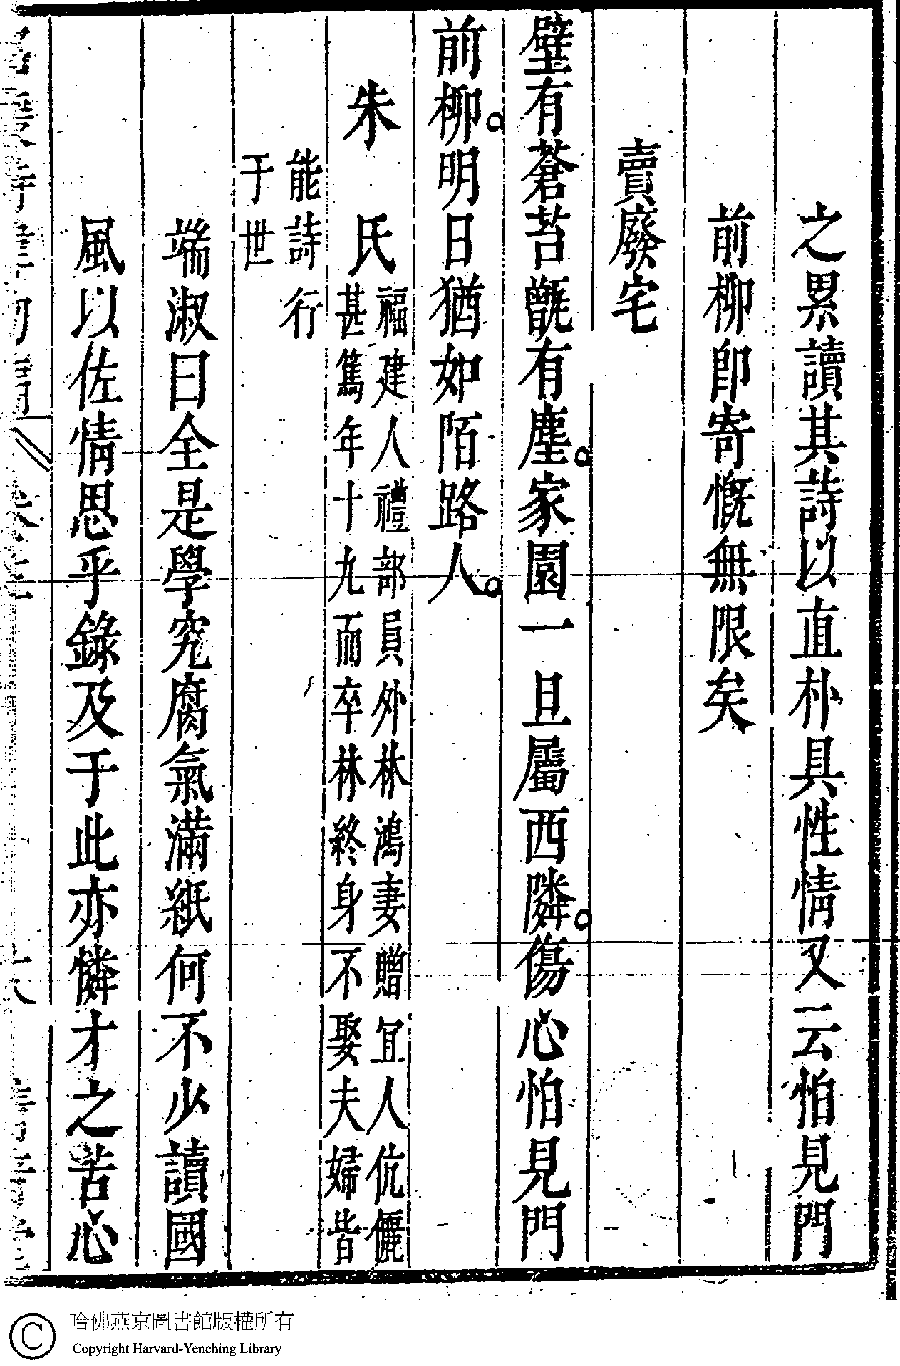 之累讀其詩以直朴具性情又云怕見門
前柳卽寄慨無限矣
賣廢宅
壁有蒼苔甑有塵。家園一旦屬西隣。傷心怕見門
前柳。明日猶如陌路人。
朱氏
福建人禮部員外林鴻妻贈宜人伉儷
甚篤年十九而卒林終身不娶夫婦皆
能詩行
于世
端淑曰全是學究腐氣滿紙何不少讀國
風以佐情思乎錄及于此亦憐才之苦心
哈佛燕京圖書館版權所有
Copyright Harvard-Yenching Library